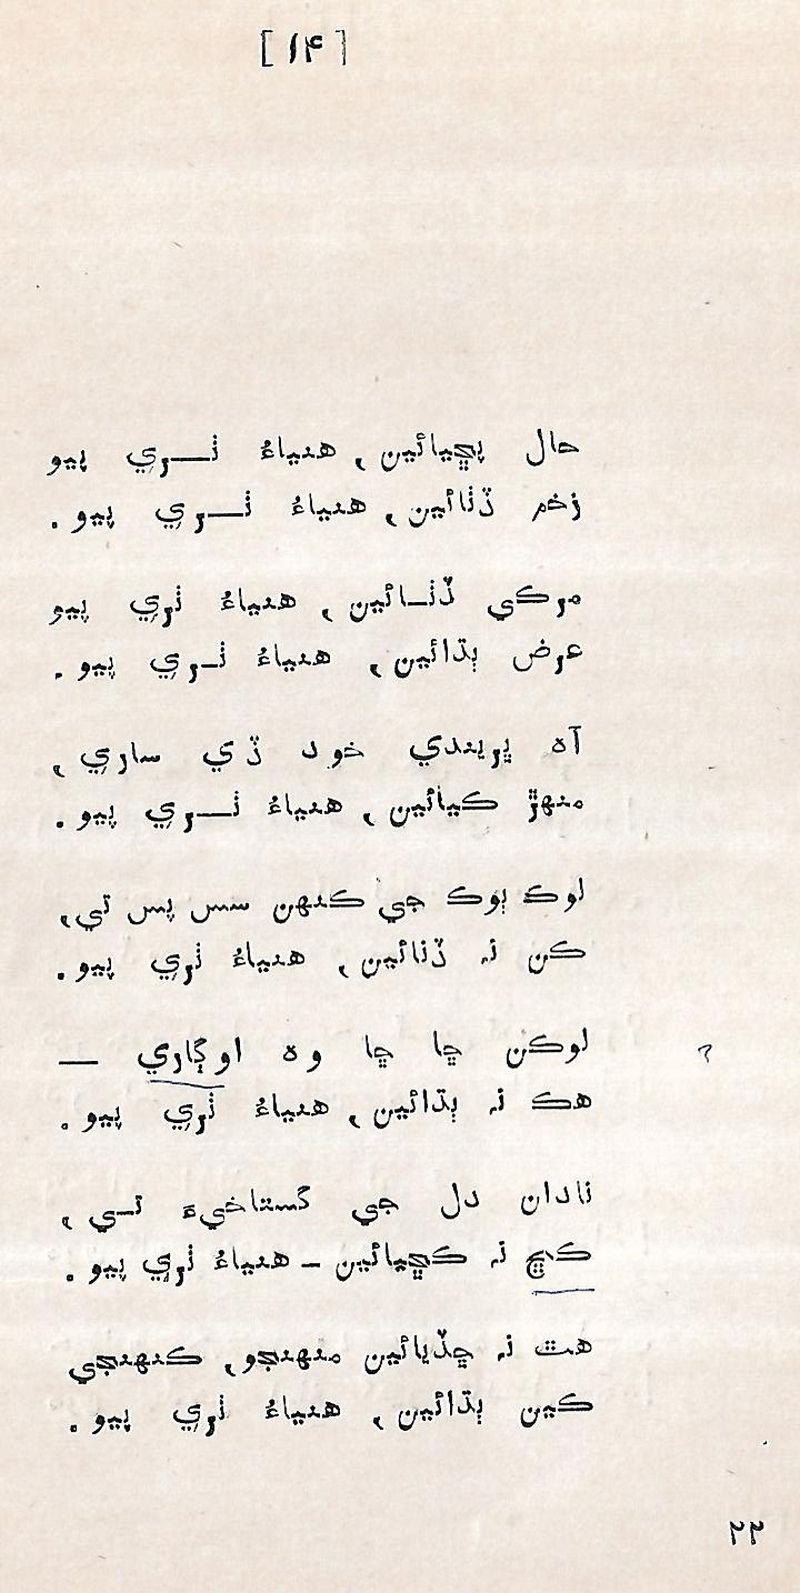 [۱۴]
حال پڇيائين، هنياءُ ٺــري پيو
زخم ڏٺائين، هنياءُ ٺــري پيو.
مرڪي ڏٺـائين، هنياءُ ٺري پيو
عرض ٻڌائين، هنياءُ ٺـري پيو.
آه ڀريندي خود ڏي ساري،
منهڙ ڪيائين، هنياءُ ٺــري پيو.
لوڪ ٻوڪ جي ڪنهن سس پس تي،
ڪن نہ ڏنائين، هنياءُ ٺري پيو.
لوڪن ڇا ڇا وه اوڳاري —
هڪ نہ ٻڌائين، هنياءُ ٺري پيو.
نادان دل جي گستاخيءَ تـي،
ڪڇ نہ ڪڇيائين – هنياءُ ٺري پيو.
هٿ نہ ڇڏيائين منهنجو، ڪنهنجي
ڪين ٻڌائين، هنياءُ ٺري پيو.
۲۲